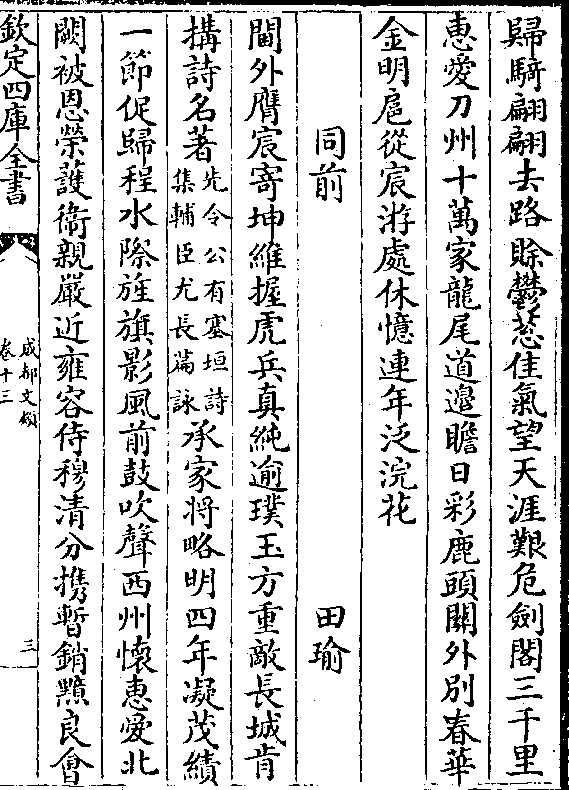 歸騎翩翩去路賖鬱葱佳氣望天涯艱危劍閣三千里
惠愛刀州十萬家龍尾道邊瞻日彩鹿頭關外別春華
金明扈從宸游處休憶連年泛浣花
同前 田瑜
閫外膺宸寄坤維握虎兵真純逾璞玉方重敵長城肯
搆詩名著先令公有塞垣詩集輔臣尤長篇詠承家將略明四年凝茂績
一節促歸程水際旌旗影風前鼓吹聲西州懷惠愛北
闕被恩榮䕶衛親嚴近雍容侍穆清分携暫銷黯良會
欽定四庫全書
成都文類
卷十三
三